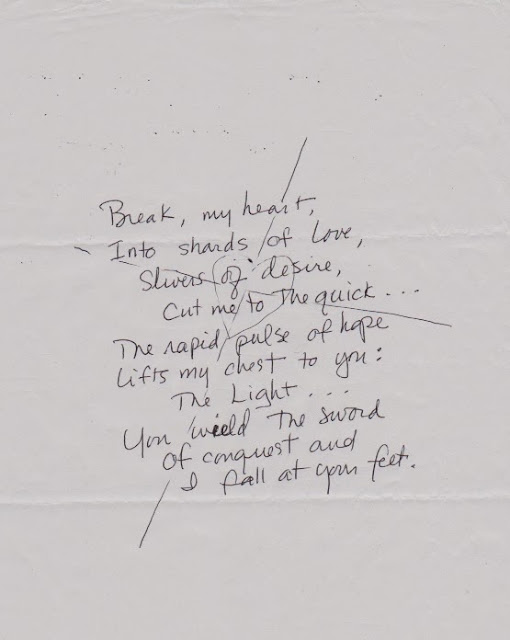 Break, my heart,
Into shards of love,
Slivers of desire,
Cut me to The quick...
The rapid pulse of hope
Lifts my chest to you:
The Light...
You wield The sword
Of conquest and
I fall at your feet.